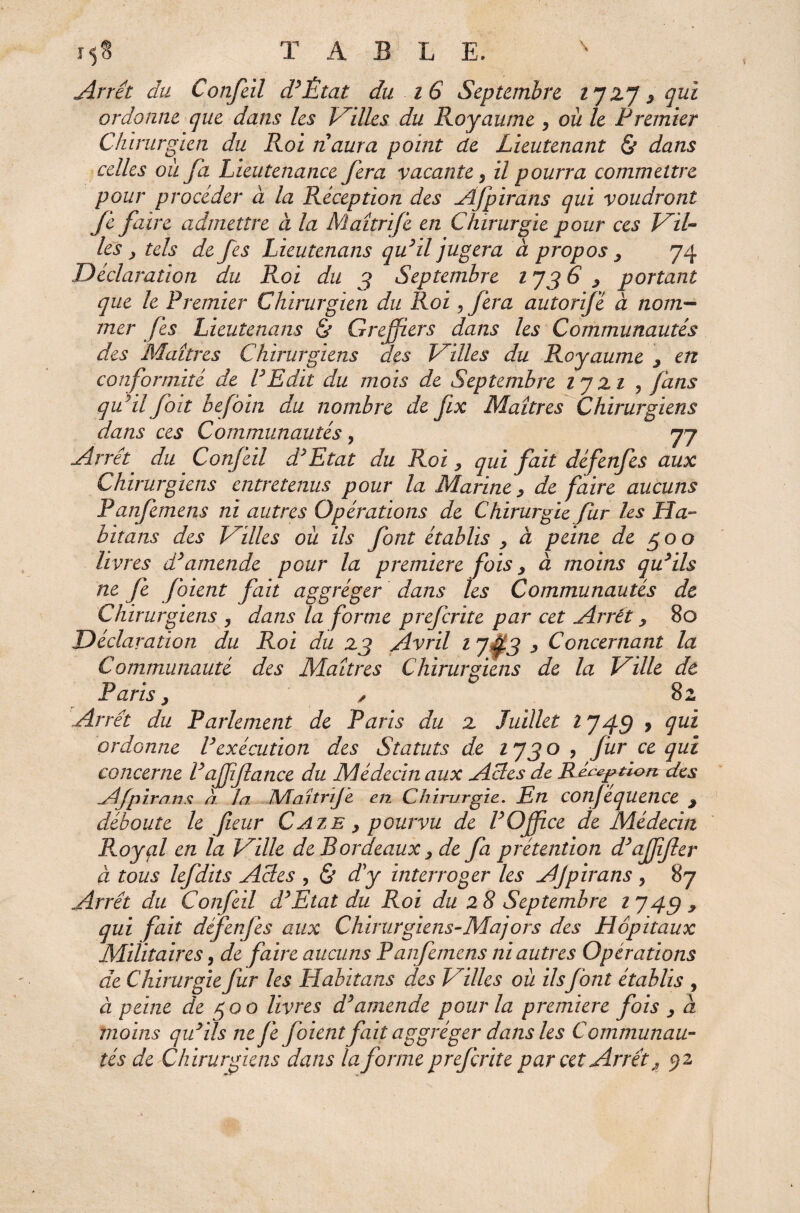 158 TABLE.
Arrêt du Conſeil d'État du 16 Septembre 1727, qui
ordonne que dans les Villes du Royaume, où le Premier
Chirurgien du Roi n'aura point de Lieutenant & dans
celles où ſa Lieutenance ſera vacante, il pourra commettre
pour procéder à la Réception des Aſpirans qui voudront
ſe faire admettre à la Maîtriſe en Chirurgie pour ces Vil-
les, tels de ſes Lieutenans qu'il jugera à propos, 74
Déclaration du Roi du 3 Septembre 1736, portant
que le Premier Chirurgien du Roi, ſera autoriſé à nom-
mer ſes Lieutenans & Greffiers dans les Communautés
des Maîtres Chirurgiens des Villes du Royaume, en
conformité de l'Edit du mois de Septembre 1721, ſans
qu'il ſoit beſoin du nombre de ſix Maîtres Chirurgiens
dans ces Communautés, 77
Arrêt du Conſeil d'Etat du Roi, qui fait défenſes aux
Chirurgiens entretenus pour la Marine, de faire aucuns
Panſemens ni autres Opérations de Chirurgie ſur les Ha-
bitans des Villes où ils ſont établis, à peine de 500
livres d'amende pour la premiere fois, à moins qu'ils
ne ſe ſoient fait aggréger dans les Communautés de
Chirurgiens, dans la forme preſcrite par cet Arrêt, 80
Déclaration du Roi du 23 Avril 1743, Concernant la
Communauté des Maîtres Chirurgiens de la Ville de
Paris, 82
Arrêt du Parlement de Paris du 2 Juillet 1749, qui
ordonne l'exécution des Statuts de 1730, ſur ce qui
concerne l'aſſiſtance du Médecin aux Actes de Réception des
Aſpirans à la Maîtriſe en Chirurgie. En conſéquence,
déboute le ſieur CAZE, pourvu de l'Office de Médecin
Royal en la Ville de Bordeaux, de ſa prétention d'aſſiſter
à tous leſdits Actes, & d'y interroger les Aſpirans, 87
Arrêt du Conſeil d'Etat du Roi du 28 Septembre 1749,
qui fait défenſes aux Chirurgiens-Majors des Hôpitaux
Militaires, de faire aucuns Panſemens ni autres Opérations
de Chirurgie ſur les Habitans des Villes où ils ſont établis,
à peine de 500 livres d'amende pour la premiere fois, à
moins qu'ils ne ſe ſoient fait aggréger dans les Communau-
tés de Chirurgiens dans la forme preſcrite par cet Arrêt, 92